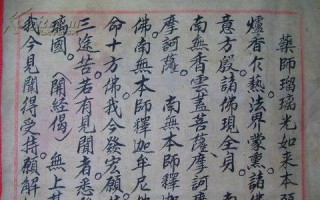 藥師瑠璃光如來本
爐香乍爇。法界蒙熏。諸佛
意方殷。諸佛現全身。南
南無香雲盖菩薩。摩訶
摩訶薩。 南無本師釋迦
佛南無本師釋迦牟尼佛
命十方佛。我今發宏願
三途苦若有見聞者。悉
瑀國。 (開經偈) 無上甚
我今見聞得受持。願解